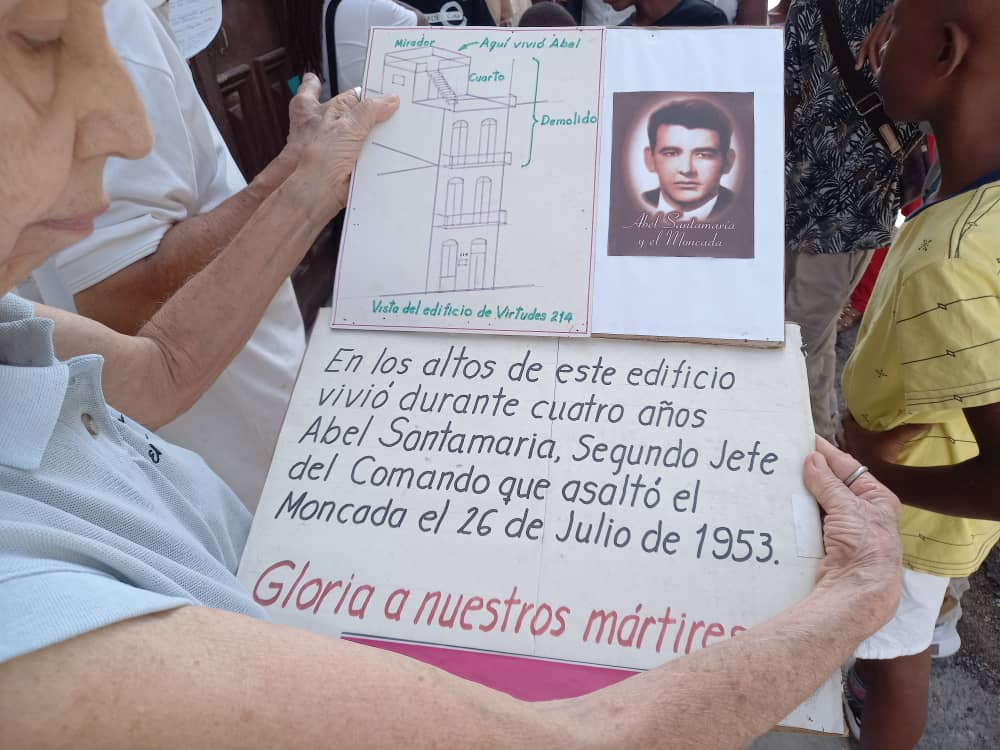 Mirador
Aquí vivió Abel
Cuarto
Demolido
214
Vista del edificio de Virtudes 214
Abel Santamaría
y el Moncada
En los altos de este edificio
vivió durante cuatro años
Abel Santamaria, Segundo Jefe
del Comando que asaltó el
Moncada el 26 de Julio de 1953.
Gloria a nuestros mártires